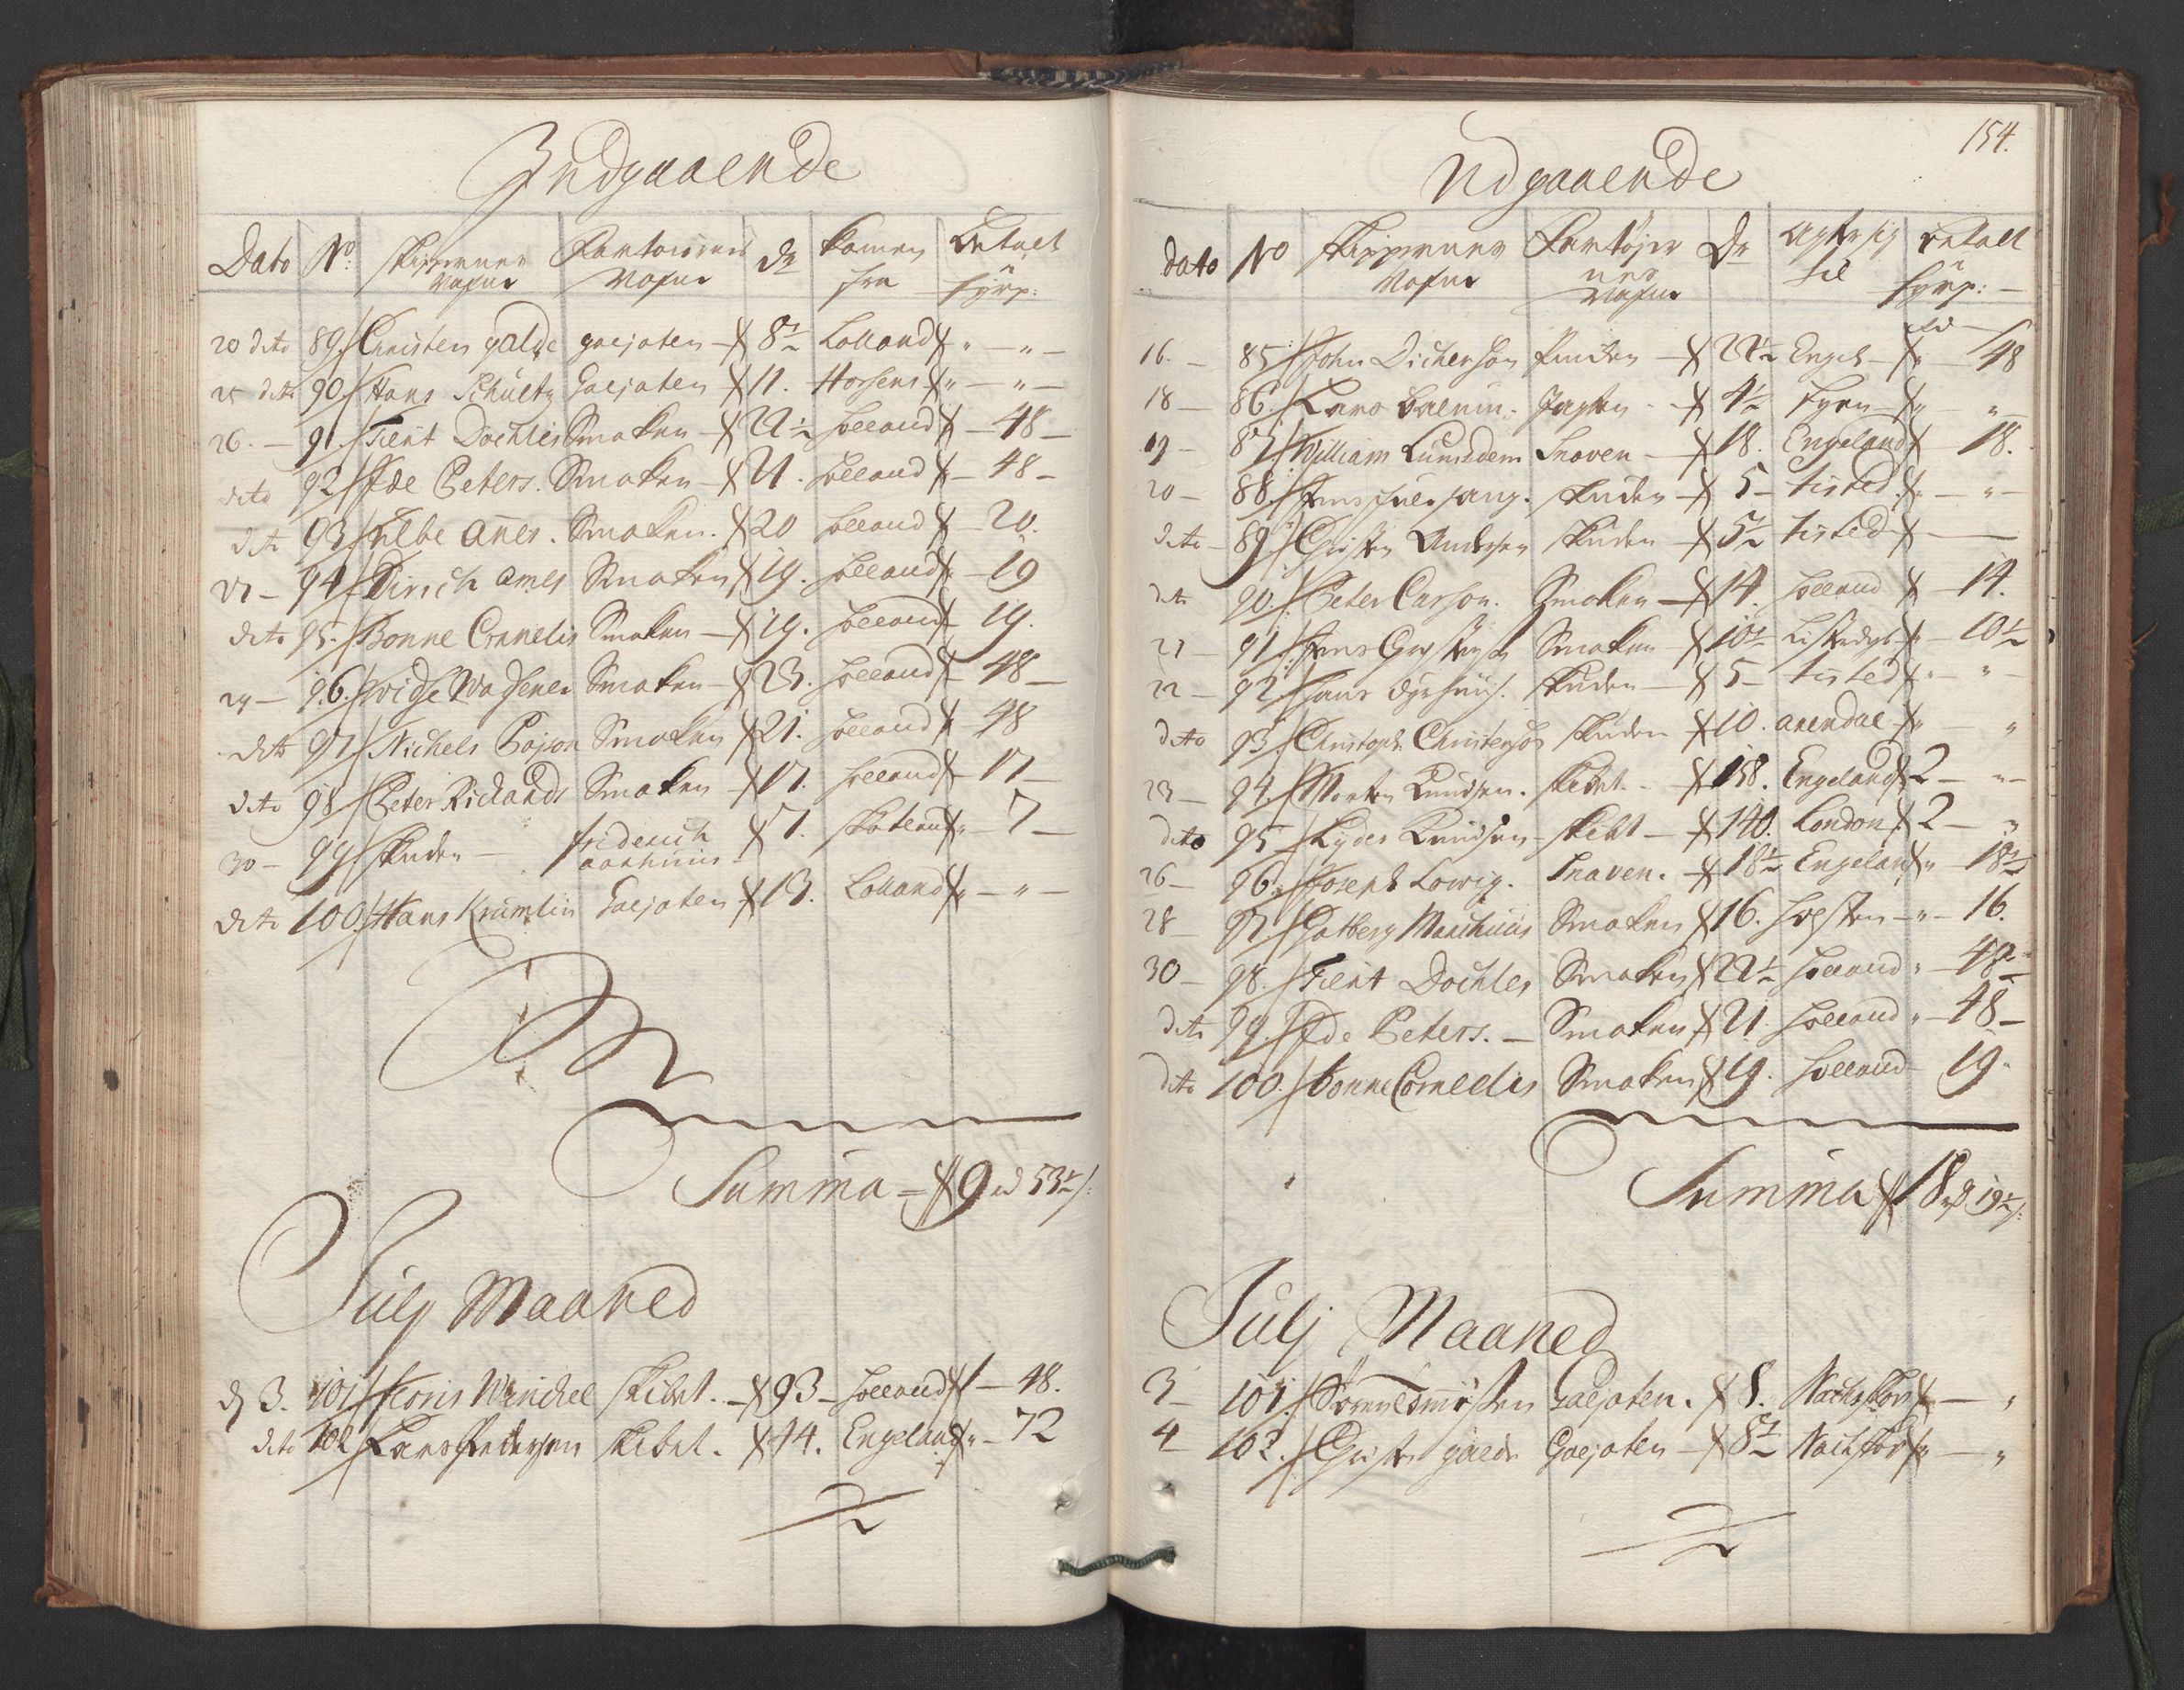 Indgaaende
Dato No skippernes Nafne Fartøiernes Nafne Dr kamen fra Betalt fyrp:
20 dito 89. Christen galde galjoten 8½ Lolland " — " —
25 dito 90. Hans Schultz Galjoten 11. Horsens " — " —
26. — 91. Tient Dochles Smaken 22½ Holland — 48 —
dito 92 Ide Peters. Smaken 21. Holland — 48 —
dito 93 Ulbe Anes. Smaken. 20 Holland — 20.
27 — 94 Dirich Ames Smaken 19. Holland — 19
dito 95. Bonne Cornelis Smaken — 19. Holland 19.
29 — 96. Smaken — 23. Holland — 48 —
dito 97 Nichels Bojon Smaken 21. Holland — 48
dito 98 Peter Richards Smaken — 17. Holland — 17 —
30 — 99. skuden — friderich aarhuus 7. — 7 —
dito 100. Hans Krumlin Galjoten 13. Lolland — " —
Summa — 9 rd 53½ s:
July Maaned
d 3. 101 Floris Winckel skibet. — 93 — Holland 1 — 48.
dito 102 Lars Pedersen skibet. 74. Engeland " — 72
154.
Udgaaende
dato No skippernes Nafne Fartøjernes Nafne Dr Agter sig til betalt fyrp: —
16. — 85. John Dicherson skuden — 22½ Engel — 48
18 — 86. Lars Jagten — 4½ fyen — "
19 — 87 William Lumsdem Snaven — 18. Engeland — 18.
20 — 88. skuden — 5 — tisted — " —
dito — 89 Christen Andersen skuden — 5½ tisted —
dito 90. Peter Carson. Smaken — 14. Holland — 14.
21 — 91. Smaken — 10½ — 10½
22 — 92. Hans skuden — 5 — tisted " —
dito 93. Christoph Christensøn skuden 10. arendal — "
23 — 94. Morten Knudsen. skibet. — 158. Engeland 2 — " —
dito 95 Lyder Knudsen skibet — 140. London. 2 — "
26 — 96. Joseph Lowig. Snaven. — 18½ Engeland — 18½
28 — 97 Smaken 16. Holsten — " — 16.
30 — 98. Tient Dochles Smaken 22½ Holland — 48 —
dito 99. Ide Peters. — Smaken 21. Holland — 48 —
dito 100. bonne Cornelis Smaken 19. Holland 19 —
Summa 18 rd 19½ s:
Julj Maaned
3 — 101. Galjoten. 8. — "
4 — 102. Christen galde Galjoten — 8½ — "